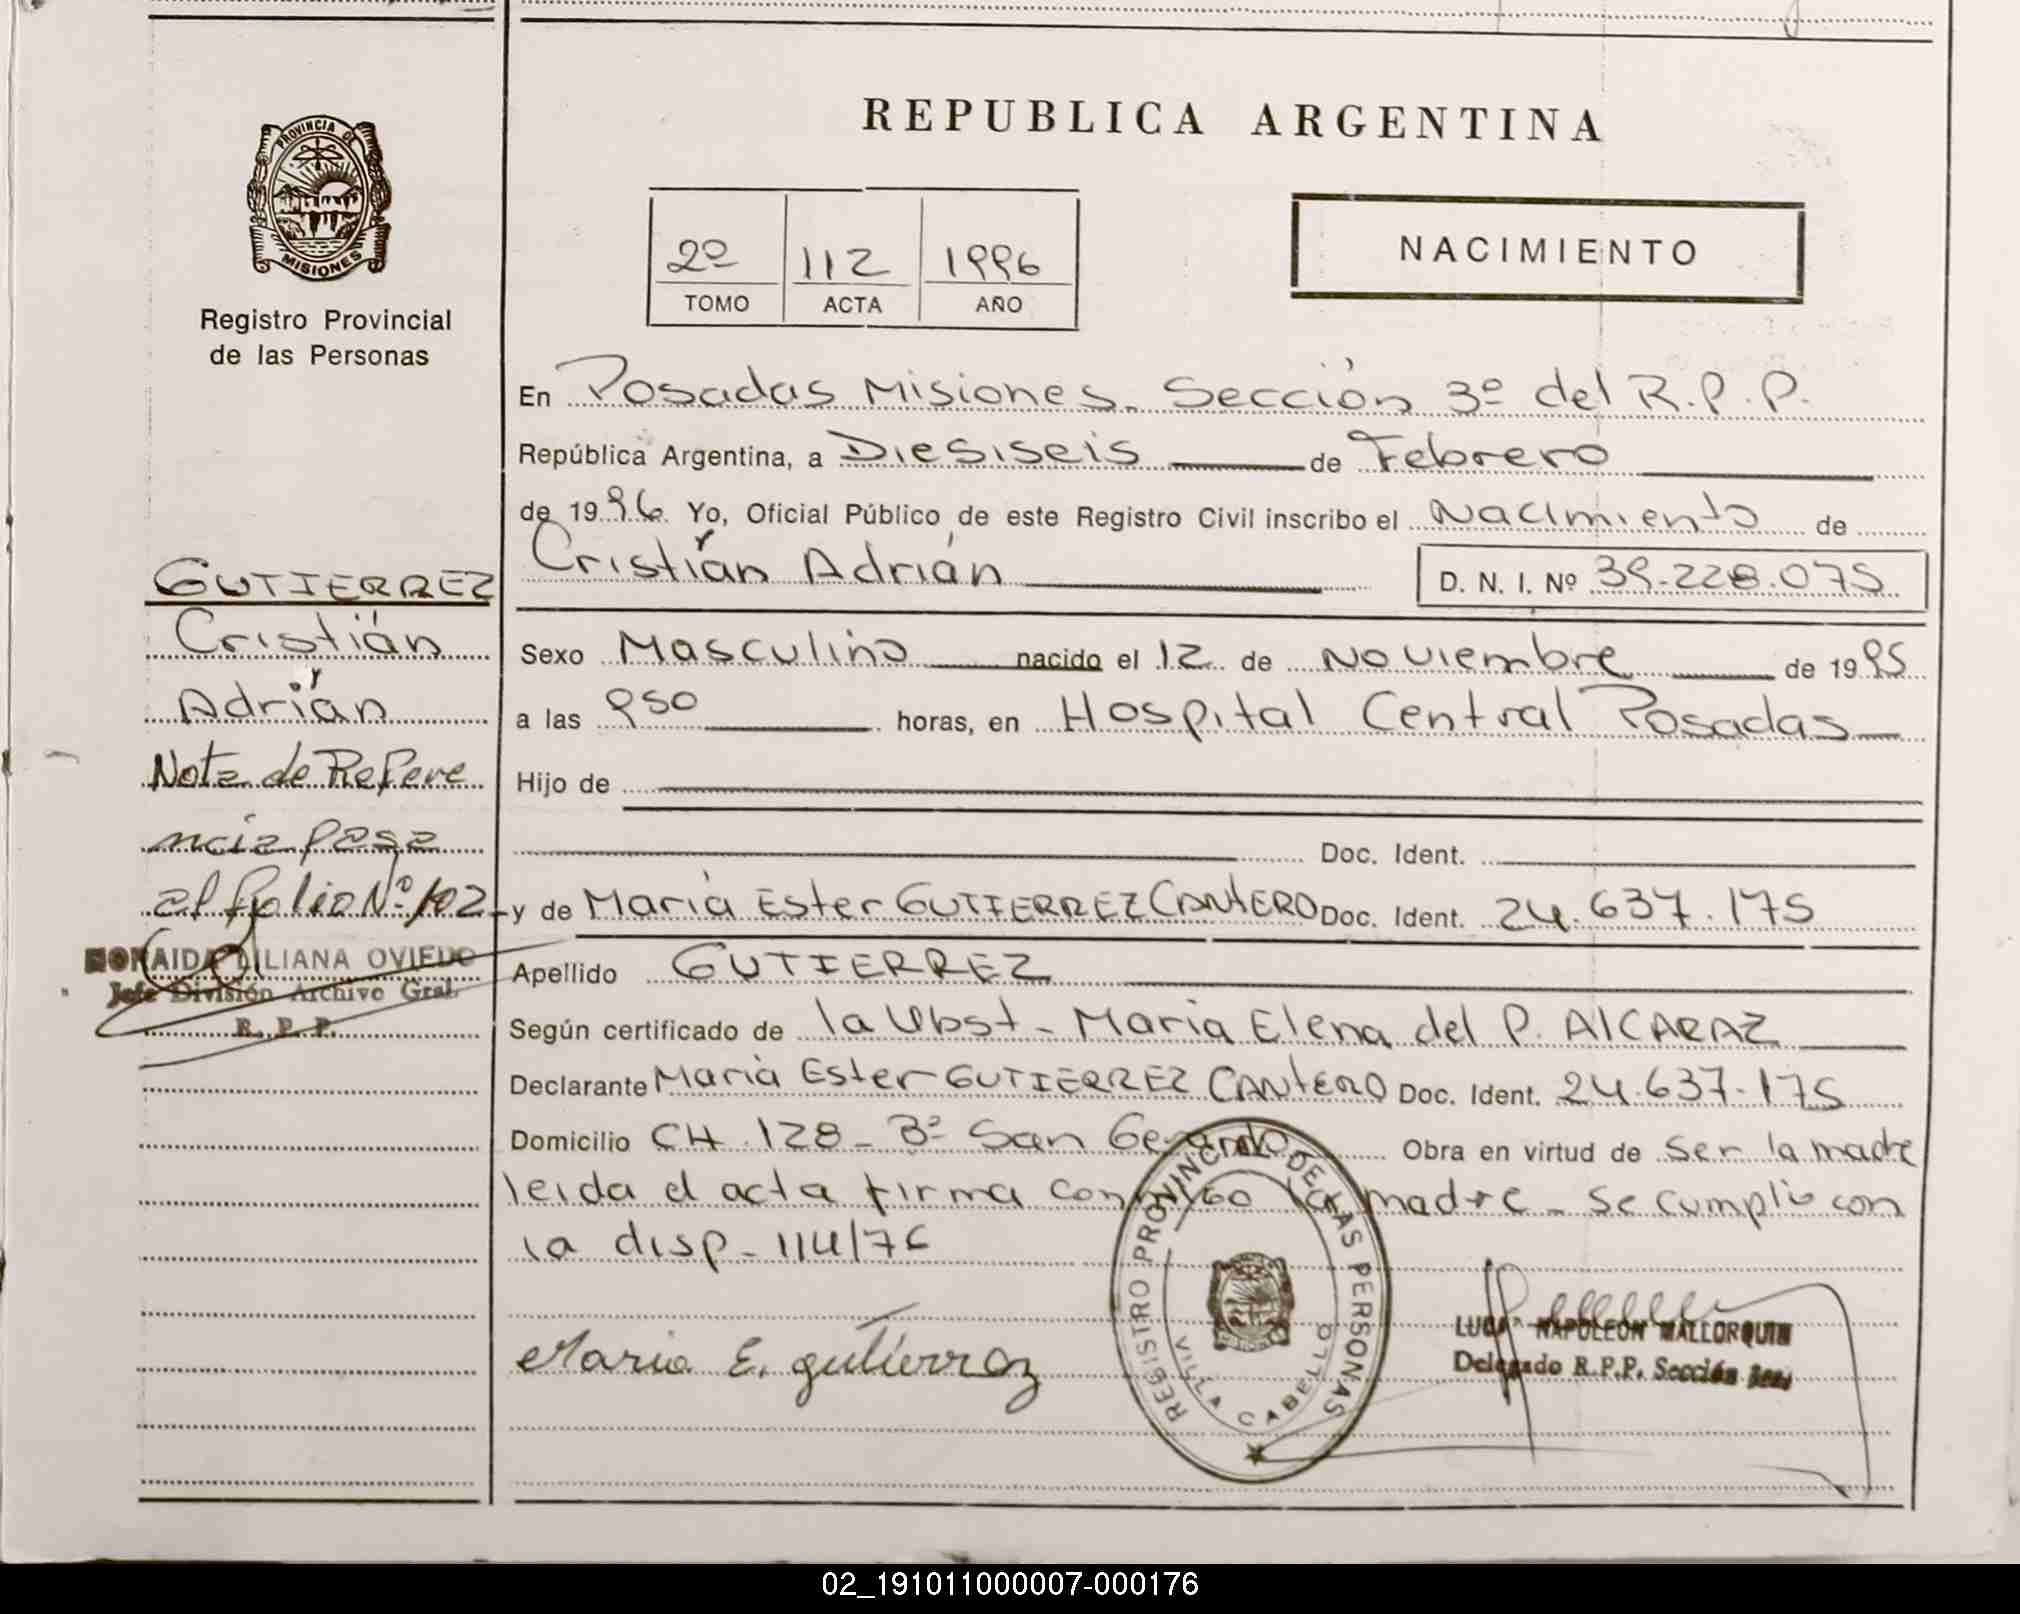 REPUBLICA ARGENTINA
PROVINCIA DE
MISIONES
Registro Provincial
de las Personas
2º 112 1996
TOMO ACTA AÑO
NACIMIENTO
En Posadas Misiones. Sección 3º del R.P.P.
República Argentina, a Diesiseis de Febrero
de 1996. Yo, Oficial Público de este Registro Civil inscribo el Nacimiento de
Cristián Adrián D. N. I. Nº 39.228.075
Sexo Masculino nacido el 12 de Noviembre de 1995
a las 950 horas, en Hospital Central Posadas
Hijo de
Doc. Ident.
y de María Ester GUTIERREZ CANTERO Doc. Ident. 24.637.175
Apellido GUTIERREZ
Según certificado de la Obst - Maria Elena del P. AlCARAZ
Declarante María Ester GUTIERREZ CANTERO Doc. Ident. 24.637.175
Domicilio CH 128 - Bº San Gerardo Obra en virtud de Ser la madre
leida el acta firma conmigo la madre - Se cumplio con
la disp - 114/76
Maria E. gutierrez
REGISTRO PROVINCIAL DE LAS PERSONAS
VILLA CABELLO
NAPOLEON MALLORQUIN
Delegado R.P.P. Sección
GUTIERREZ
Cristián
Adrián
Nota de Refere
ncia pasa
al folio Nº 102
LILIANA OVIEDO
Jefe División Archivo Gral.
R. P. P.
02_191011000007-000176